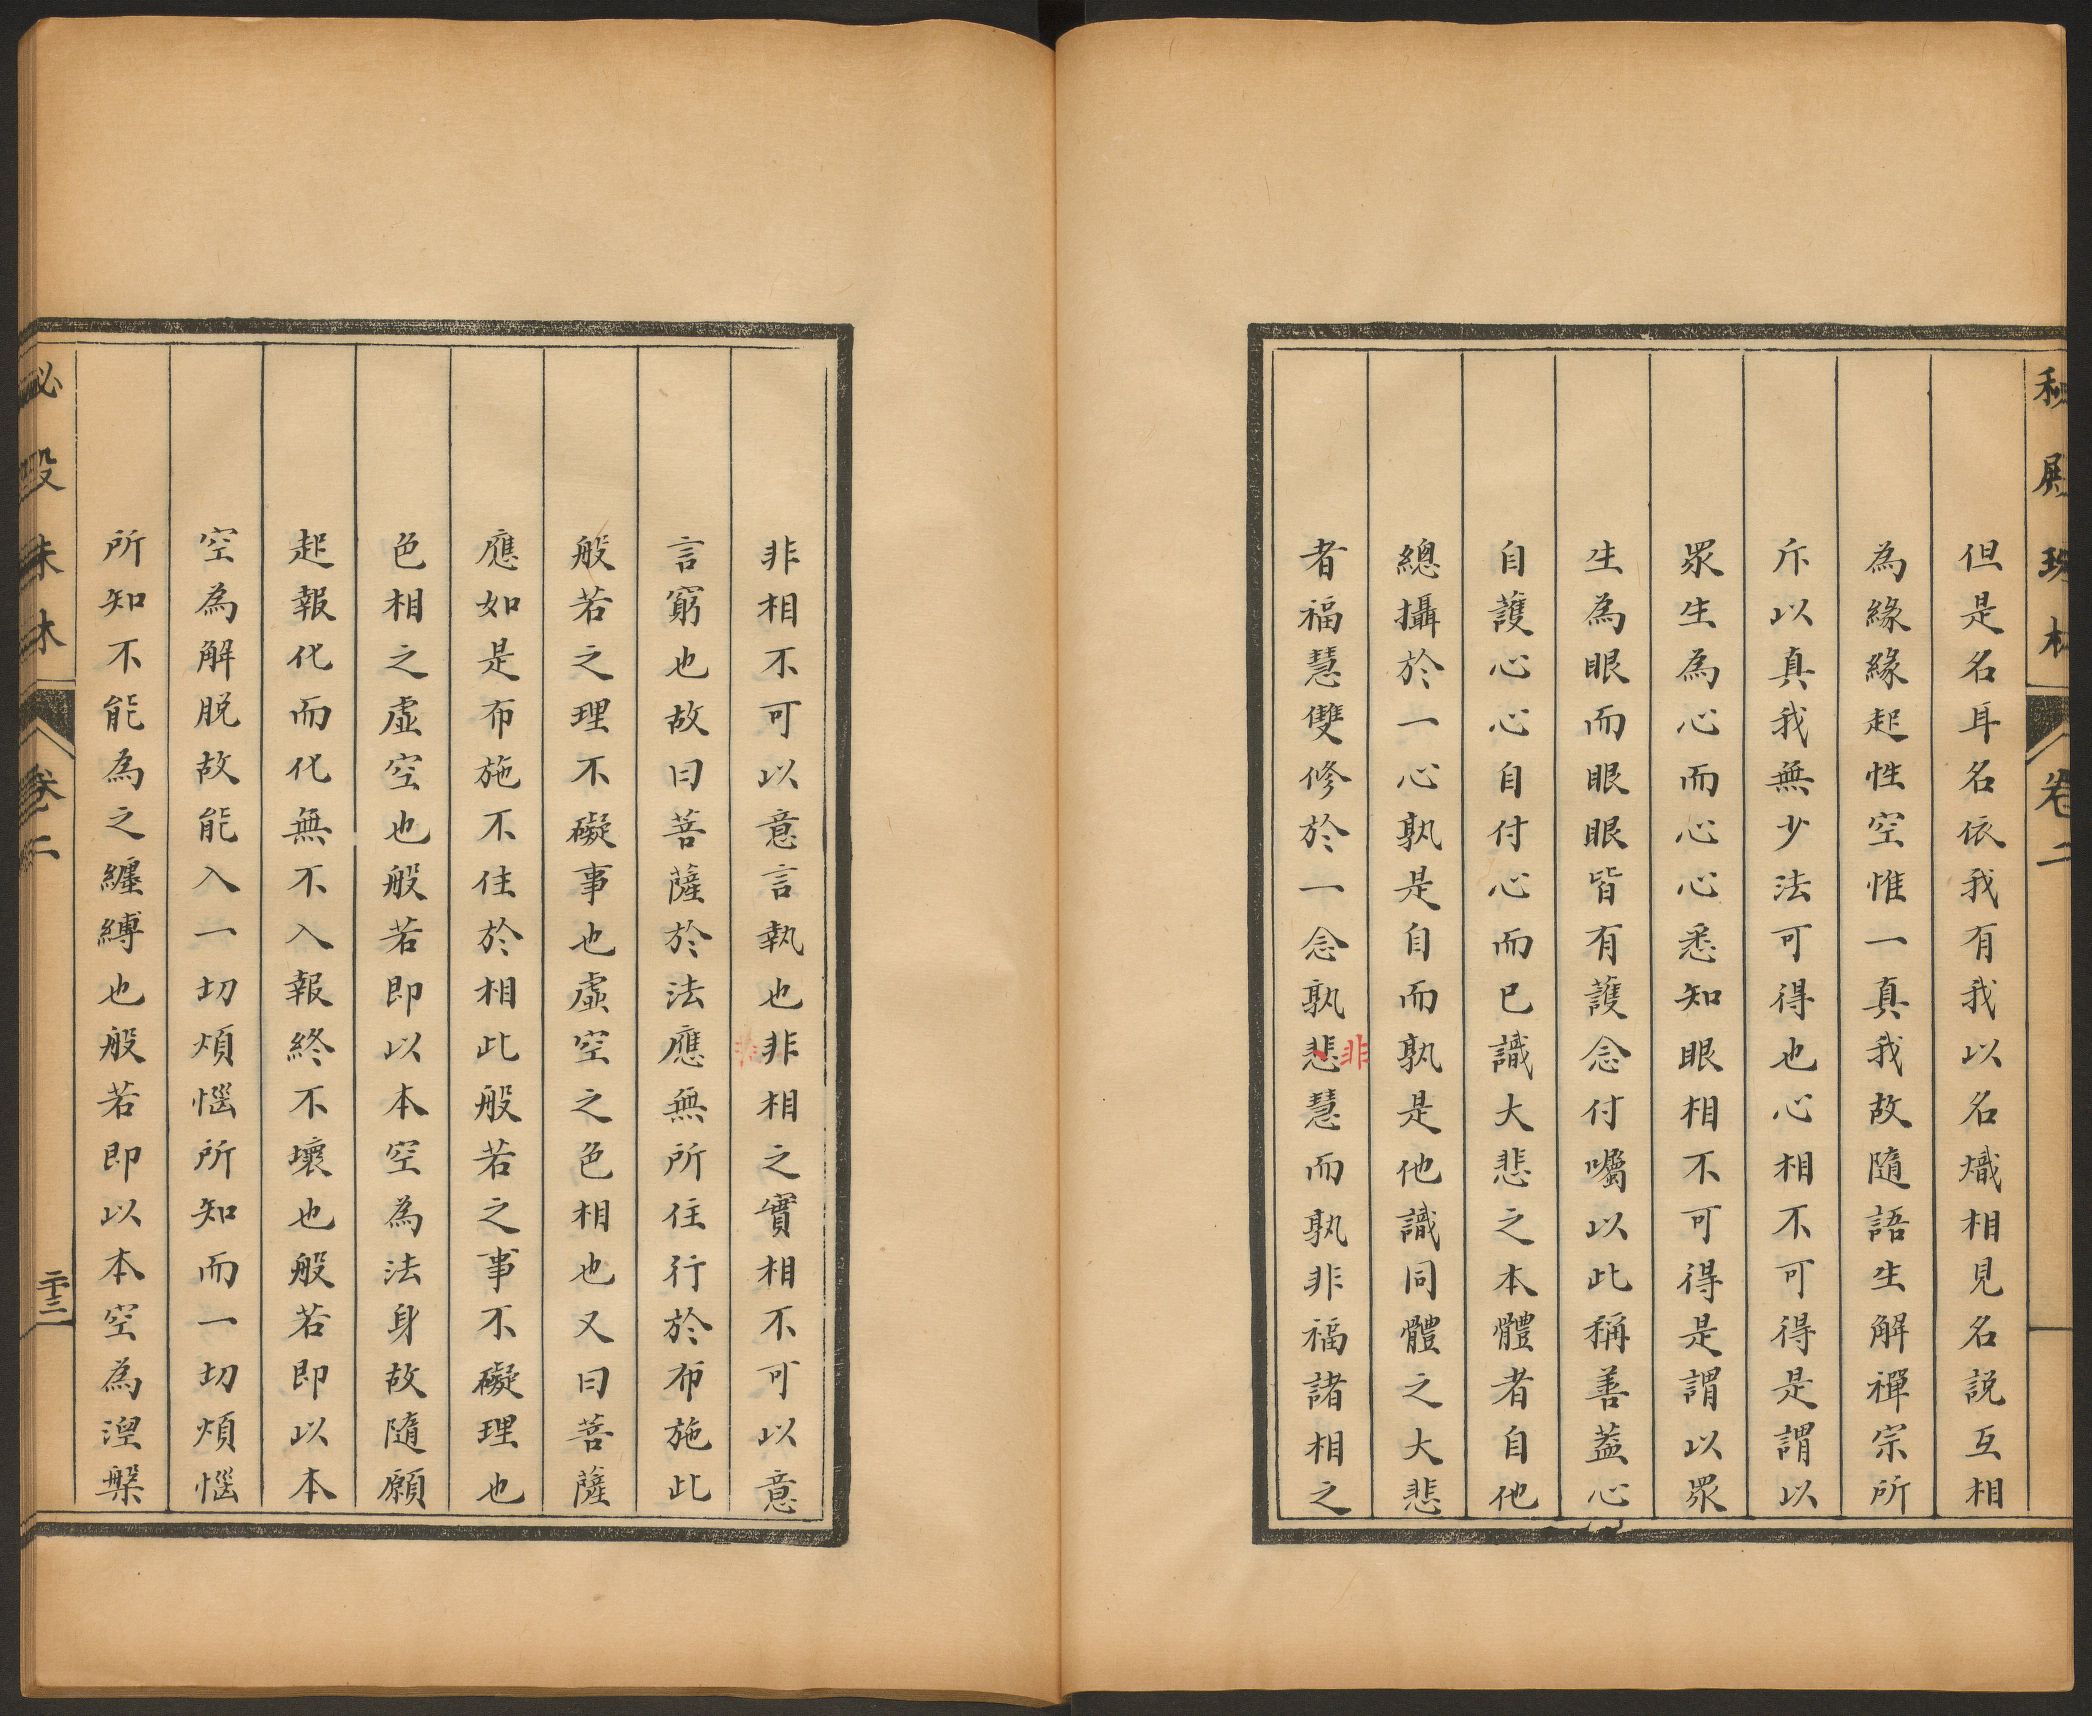 秘殿珠林 卷二
但是名耳名依我有我以名熾相見名説互相
為緣緣起性空惟一真我故隨語生解禪宗所
斥以真我無少法可得也心相不可得是謂以
眾生為心而心心悉知眼相不可得是謂以眾
生為眼而眼眼皆有護念付囑以此稱善蓋心
自護心心自付心而已識大悲之本體者自他
總攝於一心孰是自而孰是他識同體之大悲
者福慧雙修於一念孰悲慧而孰非福諸相之
非
非相不可以意言執也非相之實相不可以意
言窮也故曰菩薩於法應無所住行於布施此
般若之理不礙事也虛空之色相也又曰菩薩
應如是布施不住於相此般若之事不礙理也
色相之虛空也般若即以本空為法身故隨願
起報化而化無不入報終不壞也般若即以本
空為解脱故能入一切煩惱所知而一切煩惱
所知不能為之纏縛也般若即以本空為涅槃
秘殿珠林 卷二 二十三